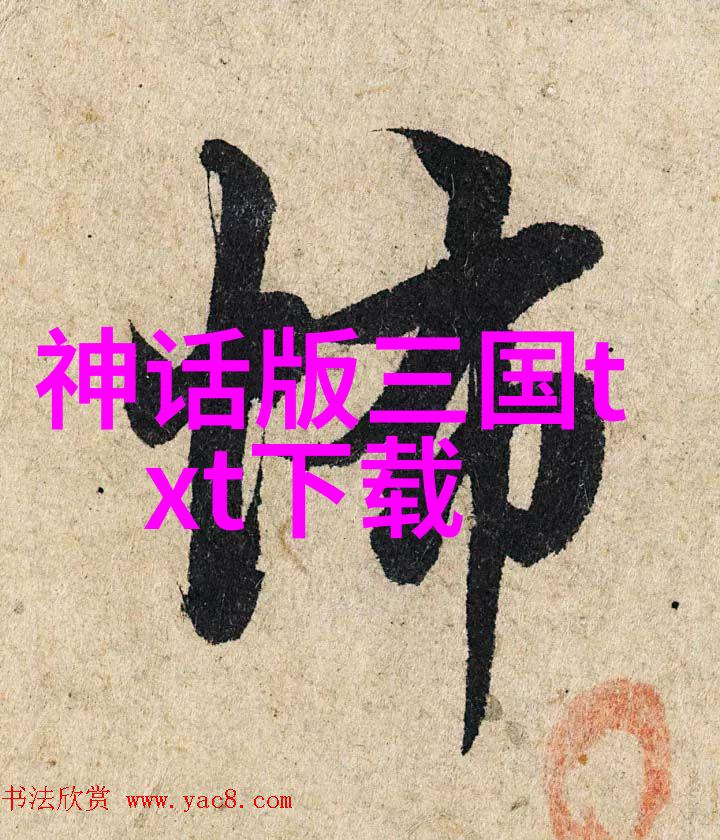 神话版三国t
xt下载
书法欣赏 www.yac8.com